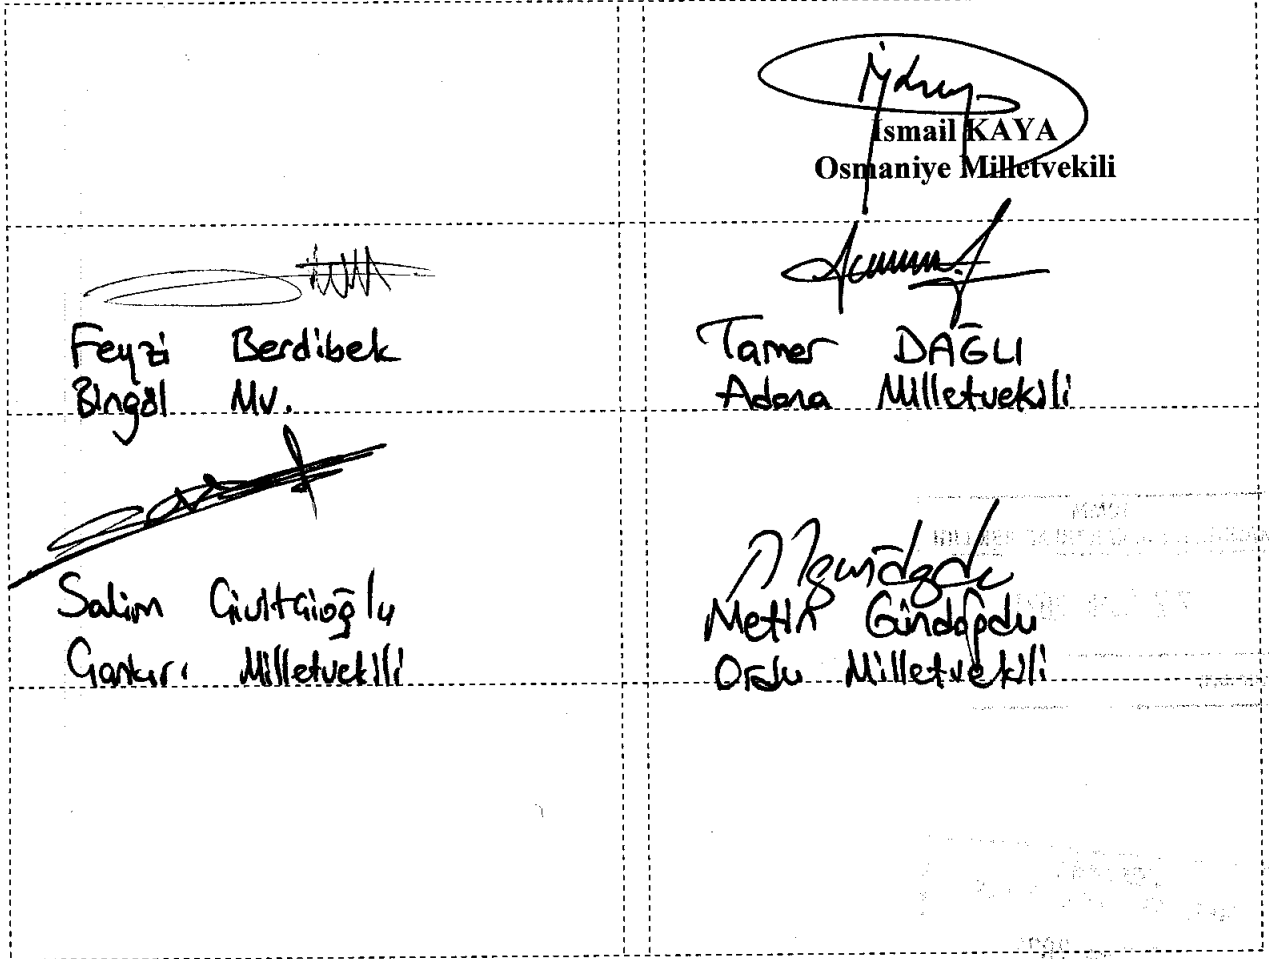 İsmail KAYA
Osmaniye Milletvekili
Feyzi Berdibek
Bingöl Mv.
Tamer DAĞLI
Adana Milletvekili
Salim Çivitcioğlu
Çankırı Milletvekili
Metin Gündoğdu
Ordu Milletvekili